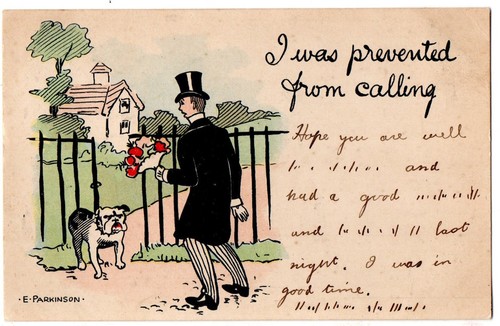 I was prevented
from calling
Hope you are well
and
had a good
and last
night. I was in
good time.
· E · PARKINSON ·